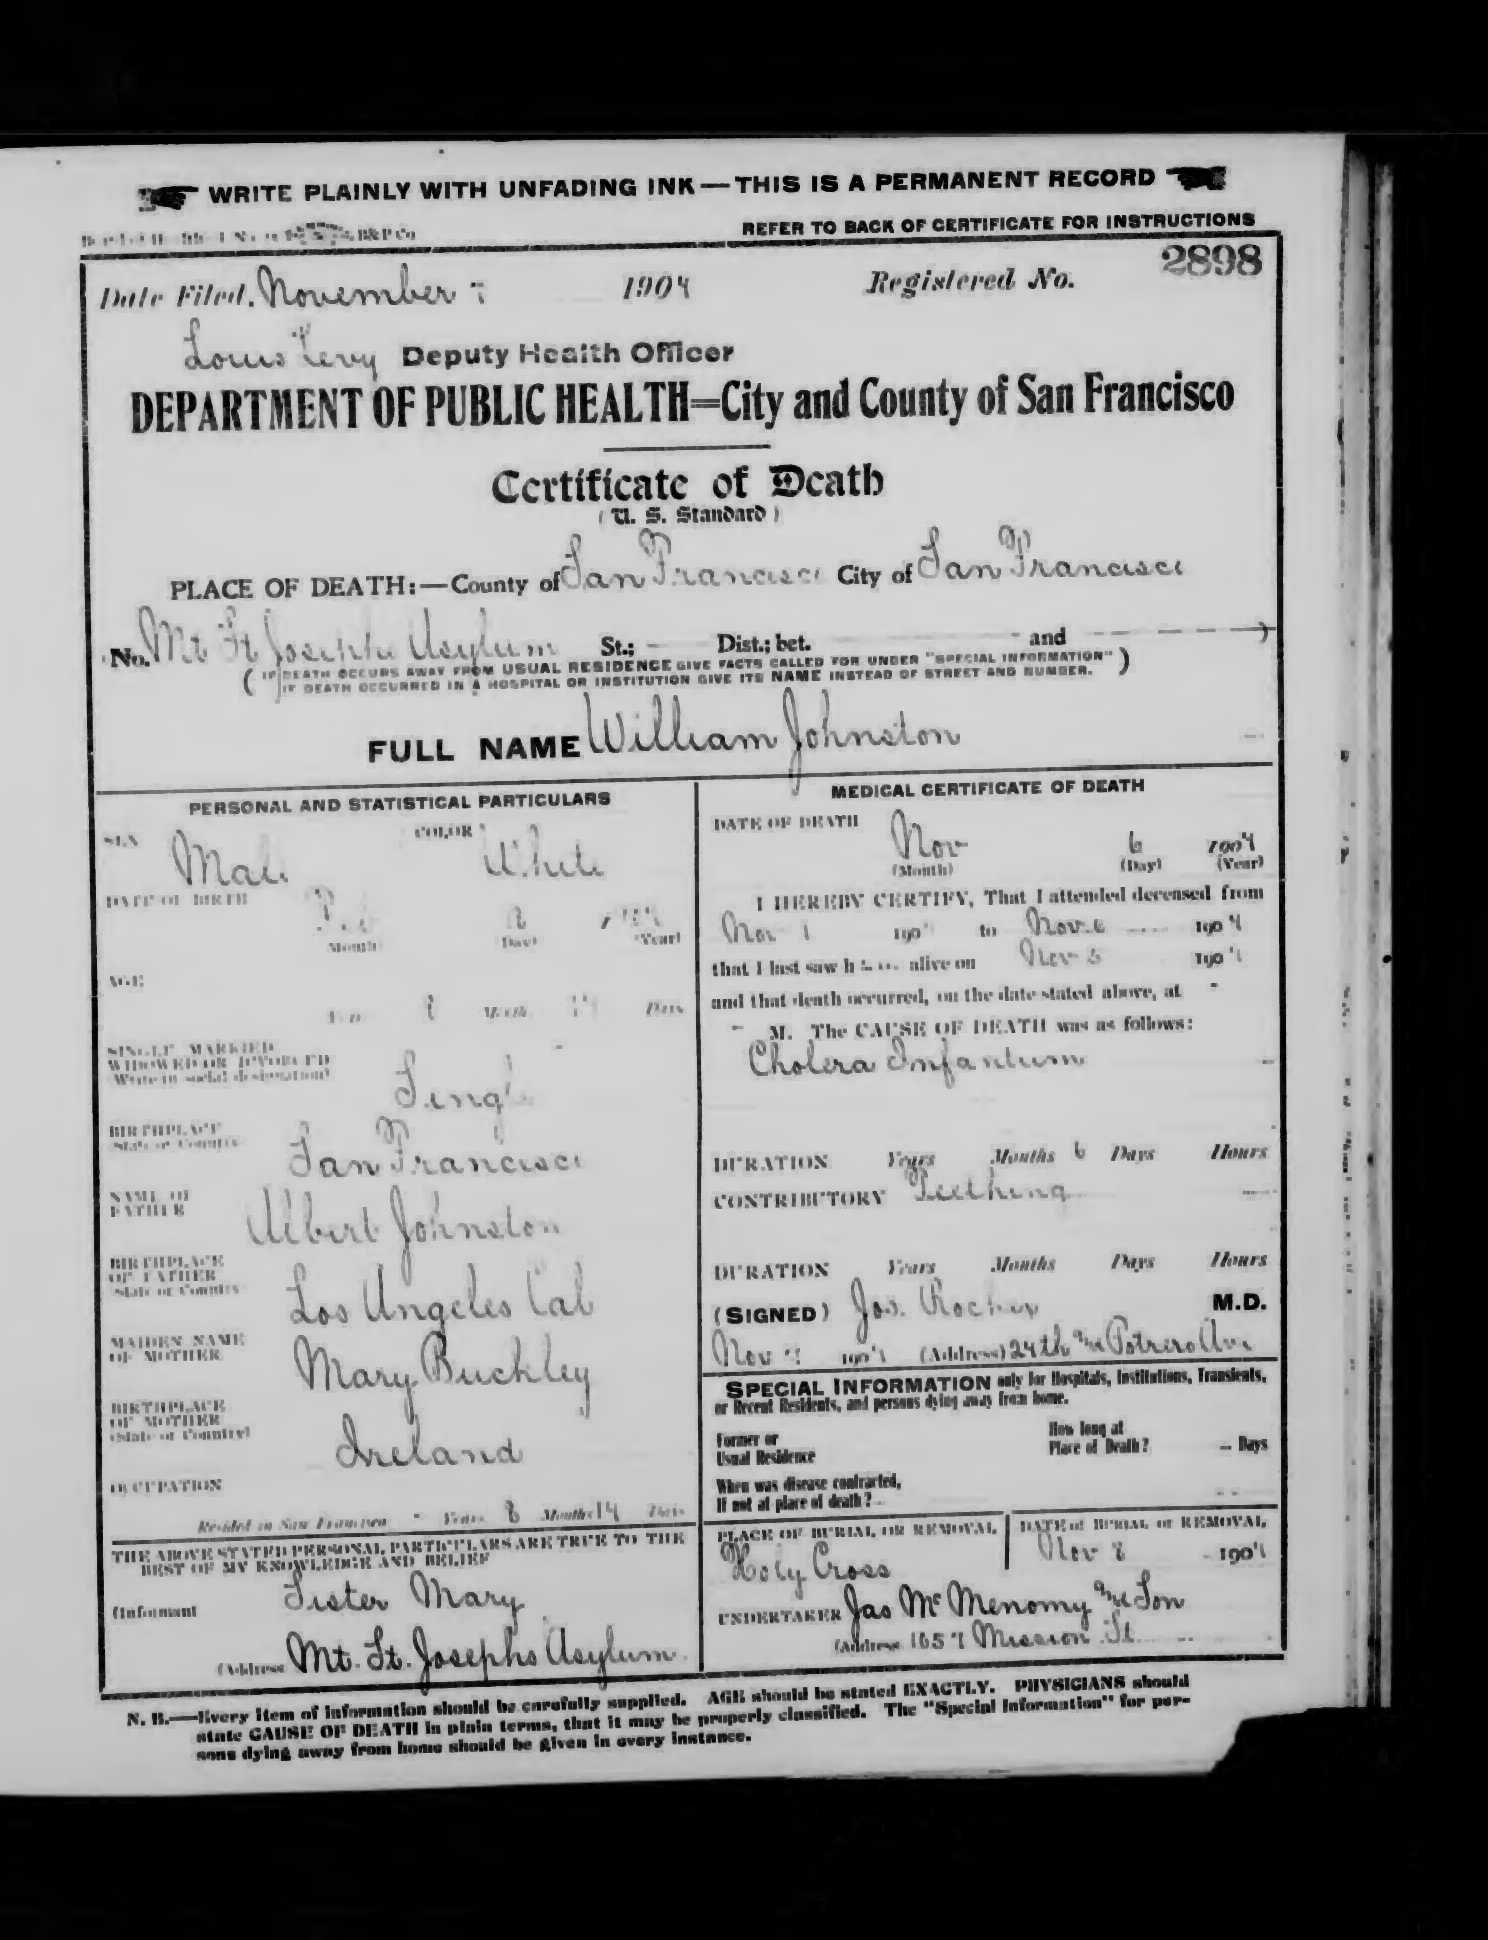 WRITE PLAINLY WITH UNFADING INK — THIS IS A PERMANENT RECORD
B&P Co
REFER TO BACK OF CERTIFICATE FOR INSTRUCTIONS
Date Filed, November 7 1904 Registered No. 2898
Louis Levy Deputy Health Officer
DEPARTMENT OF PUBLIC HEALTH=City and County of San Francisco
Certificate of Death
(U. S. Standard)
PLACE OF DEATH:—County of San Francisco City of San Francisco
No. Mt St Josephs Asylum St.; — Dist.; bet. - and - - - - )
( IF DEATH OCCURS AWAY FROM USUAL RESIDENCE GIVE FACTS CALLED FOR UNDER "SPECIAL INFORMATION" )
IF DEATH OCCURRED IN A HOSPITAL OR INSTITUTION GIVE ITS NAME INSTEAD OF STREET AND NUMBER.
FULL NAME William Johnston
PERSONAL AND STATISTICAL PARTICULARS
SEX Male COLOR White
DATE OF BIRTH
Month Day Year
AGE
Years Months Days
SINGLE, MARRIED
WIDOWED OR DIVORCED
(Write in social designation)
Single
BIRTHPLACE
State or Country
San Francisco
NAME OF
FATHER
Albert Johnston
BIRTHPLACE
OF FATHER
State or Country
Los Angeles Cal
MAIDEN NAME
OF MOTHER
Mary Buckley
BIRTHPLACE
OF MOTHER
(State or Country)
Ireland
OCCUPATION
Resided in San Francisco - Years 8 Months 14 Days
THE ABOVE STATED PERSONAL PARTICULARS ARE TRUE TO THE
BEST OF MY KNOWLEDGE AND BELIEF
(Informant Sister Mary
(Address Mt. St. Josephs Asylum.
MEDICAL CERTIFICATE OF DEATH
DATE OF DEATH Nov 6 1904
(Month) (Day) (Year)
I HEREBY CERTIFY, That I attended deceased from
Nov 1 190 to Nov. 6 1904
that I last saw h alive on Nov 1904
and that death occurred, on the date stated above, at -
- M. The CAUSE OF DEATH was as follows:
Cholera Infantum
DURATION Years Months 6 Days Hours
CONTRIBUTORY Teething
DURATION Years Months Days Hours
(SIGNED) Jos. M.D.
Nov 190 (Address) 24th and Potrero Ave
SPECIAL INFORMATION only for Hospitals, Institutions, Transients,
or Recent Residents, and persons dying away from home.
Former or
Usual Residence
How long at
Place of Death? -- Days
When was disease contracted,
If not at place of death?
PLACE OF BURIAL OR REMOVAL
Holy Cross
DATE of BURIAL or REMOVAL
Nov 8 1904
UNDERTAKER Jas McMenomy and Son
(Address 1057 Mission St
N. B.—Every item of information should be carefully supplied. AGE should be stated EXACTLY. PHYSICIANS should
state CAUSE OF DEATH in plain terms, that it may be properly classified. The "Special Information" for per-
sons dying away from home should be given in every instance.